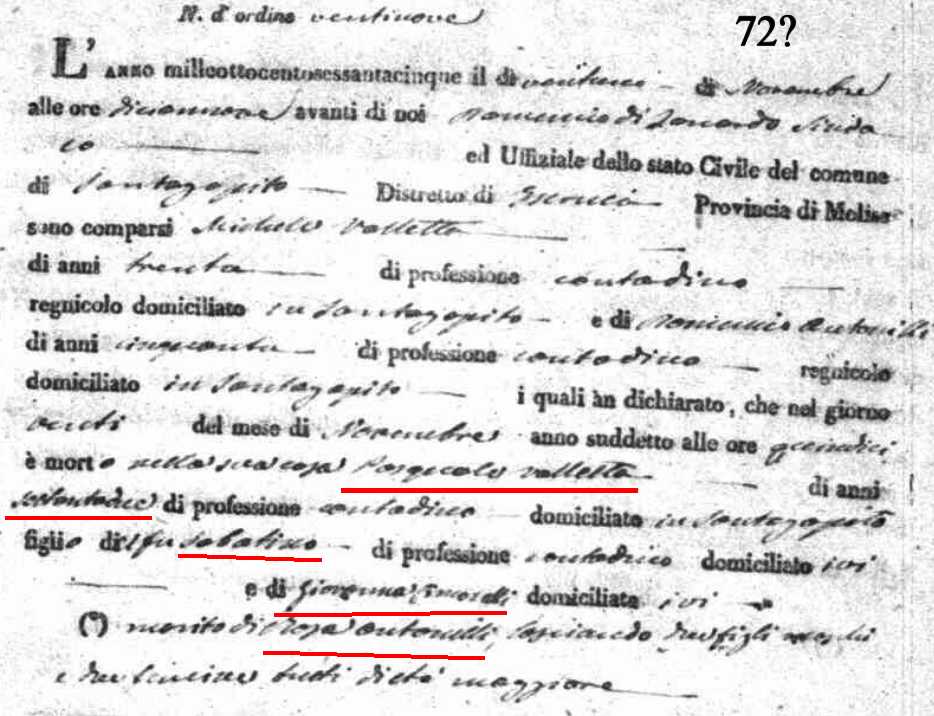 N. d'ordine ventinove
72?
L'ANNO milleottocentosessantacinque il dì ventuno di Novembre
alle ore diciannove avanti di noi Domenico di Leonardo Sinda
co ed Uffiziale dello stato Civile del comune
di Santagapito Distretto di Isernia Provincia di Molise
sono comparsi Michele Valletta
di anni trenta di professione contadino
regnicolo domiciliato in Santagapito e di Domenico Antonilli
di anni cinquanta di professione contadino regnicolo
domiciliato in Santagapito i quali àn dichiarato, che nel giorno
venti del mese di Novembre anno suddetto alle ore quindici
è morto nella sua casa Pasquale Valletta di anni
settantadue di professione contadino domiciliato in Santagapito
figlio di fu Sabatino di professione contadino domiciliato ivi
e di Giovanna domiciliata ivi
(*) marito di Rosa Antonilli, lasciando due figli maschi
e due femine tutti di età maggiore